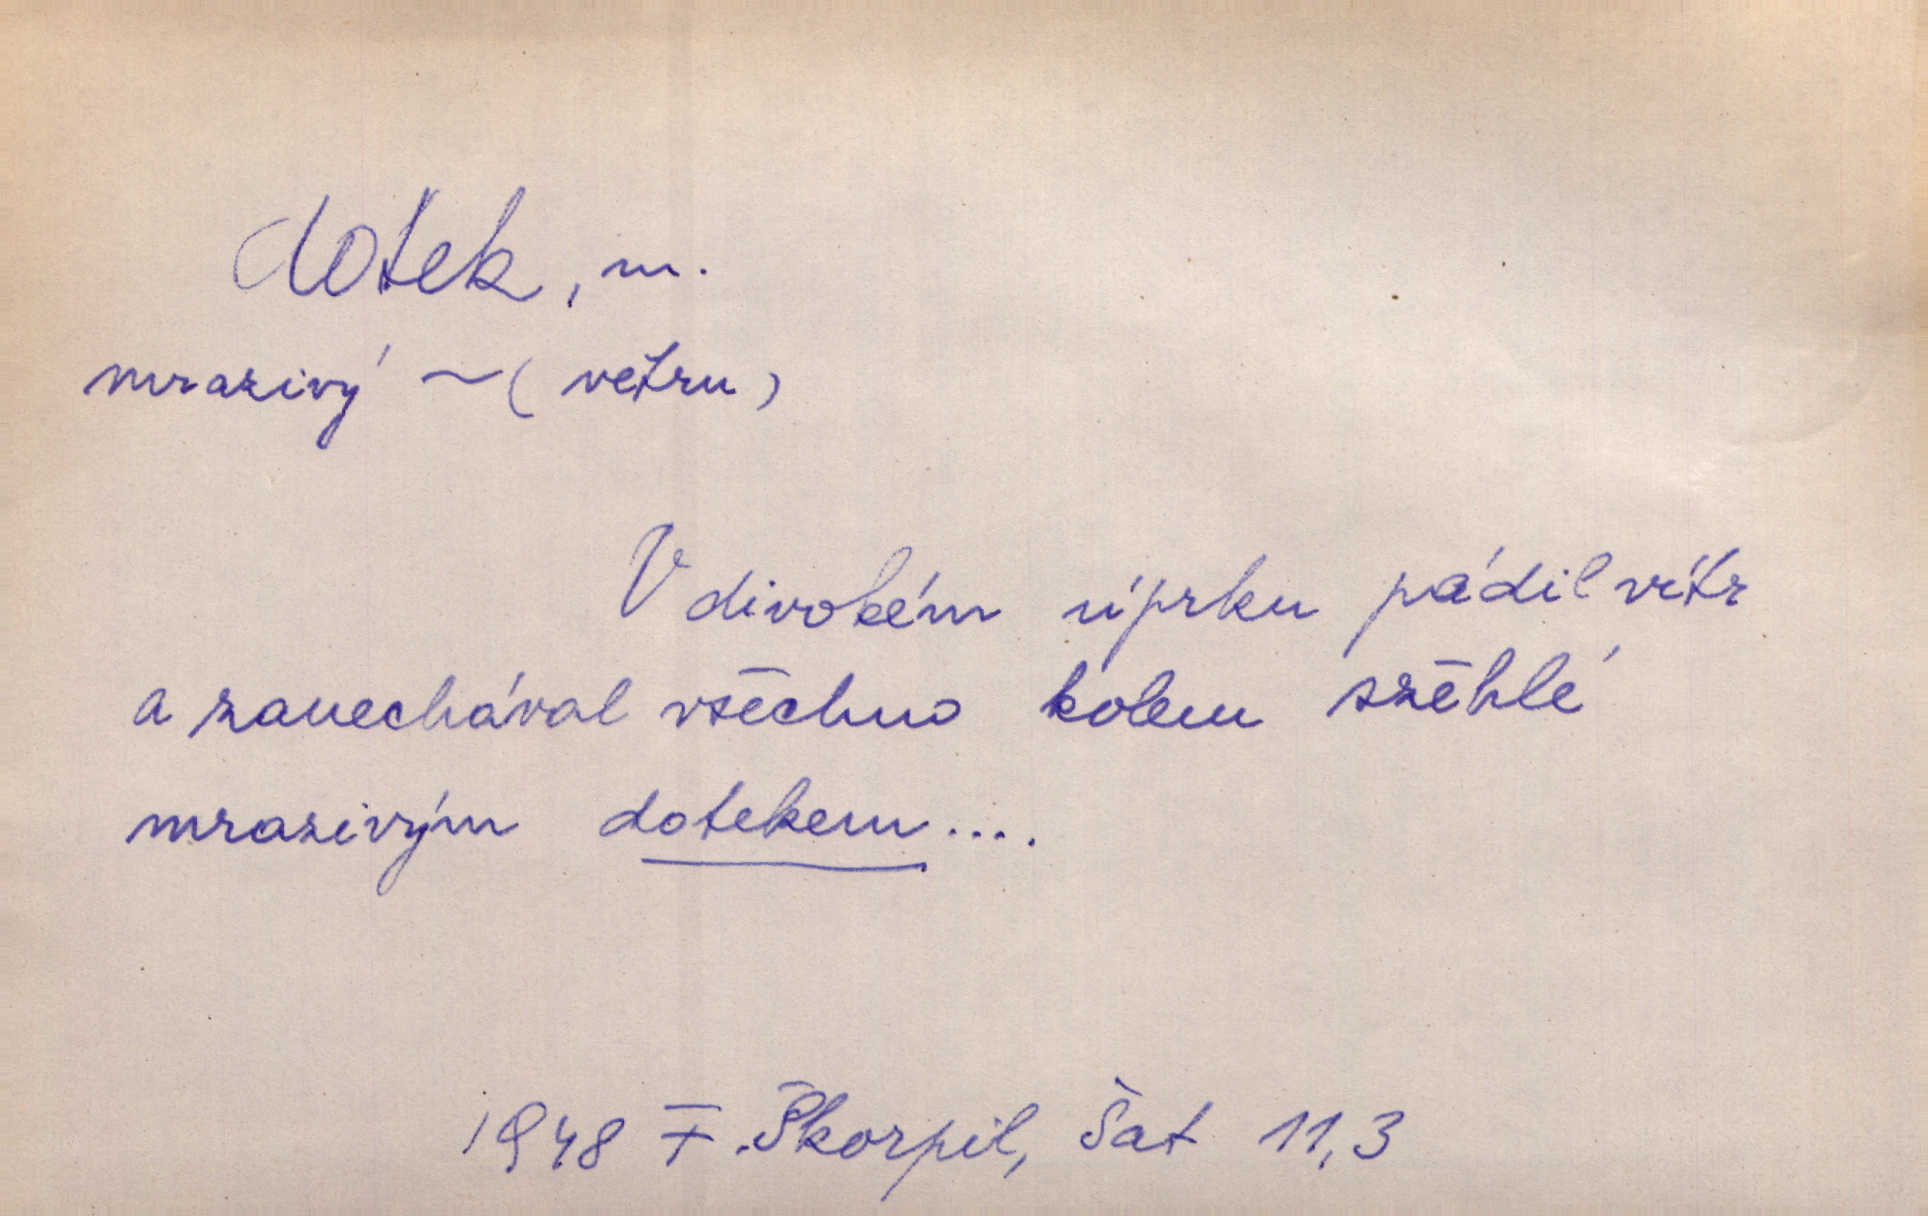 dotek, m.
mrazivý ~ (větru)
V divokém úprku pádil vítr
a zanechával všechno kolem szěhlé
mrazivým dotekem....
1948 F. Škorpil, Šat 11,3